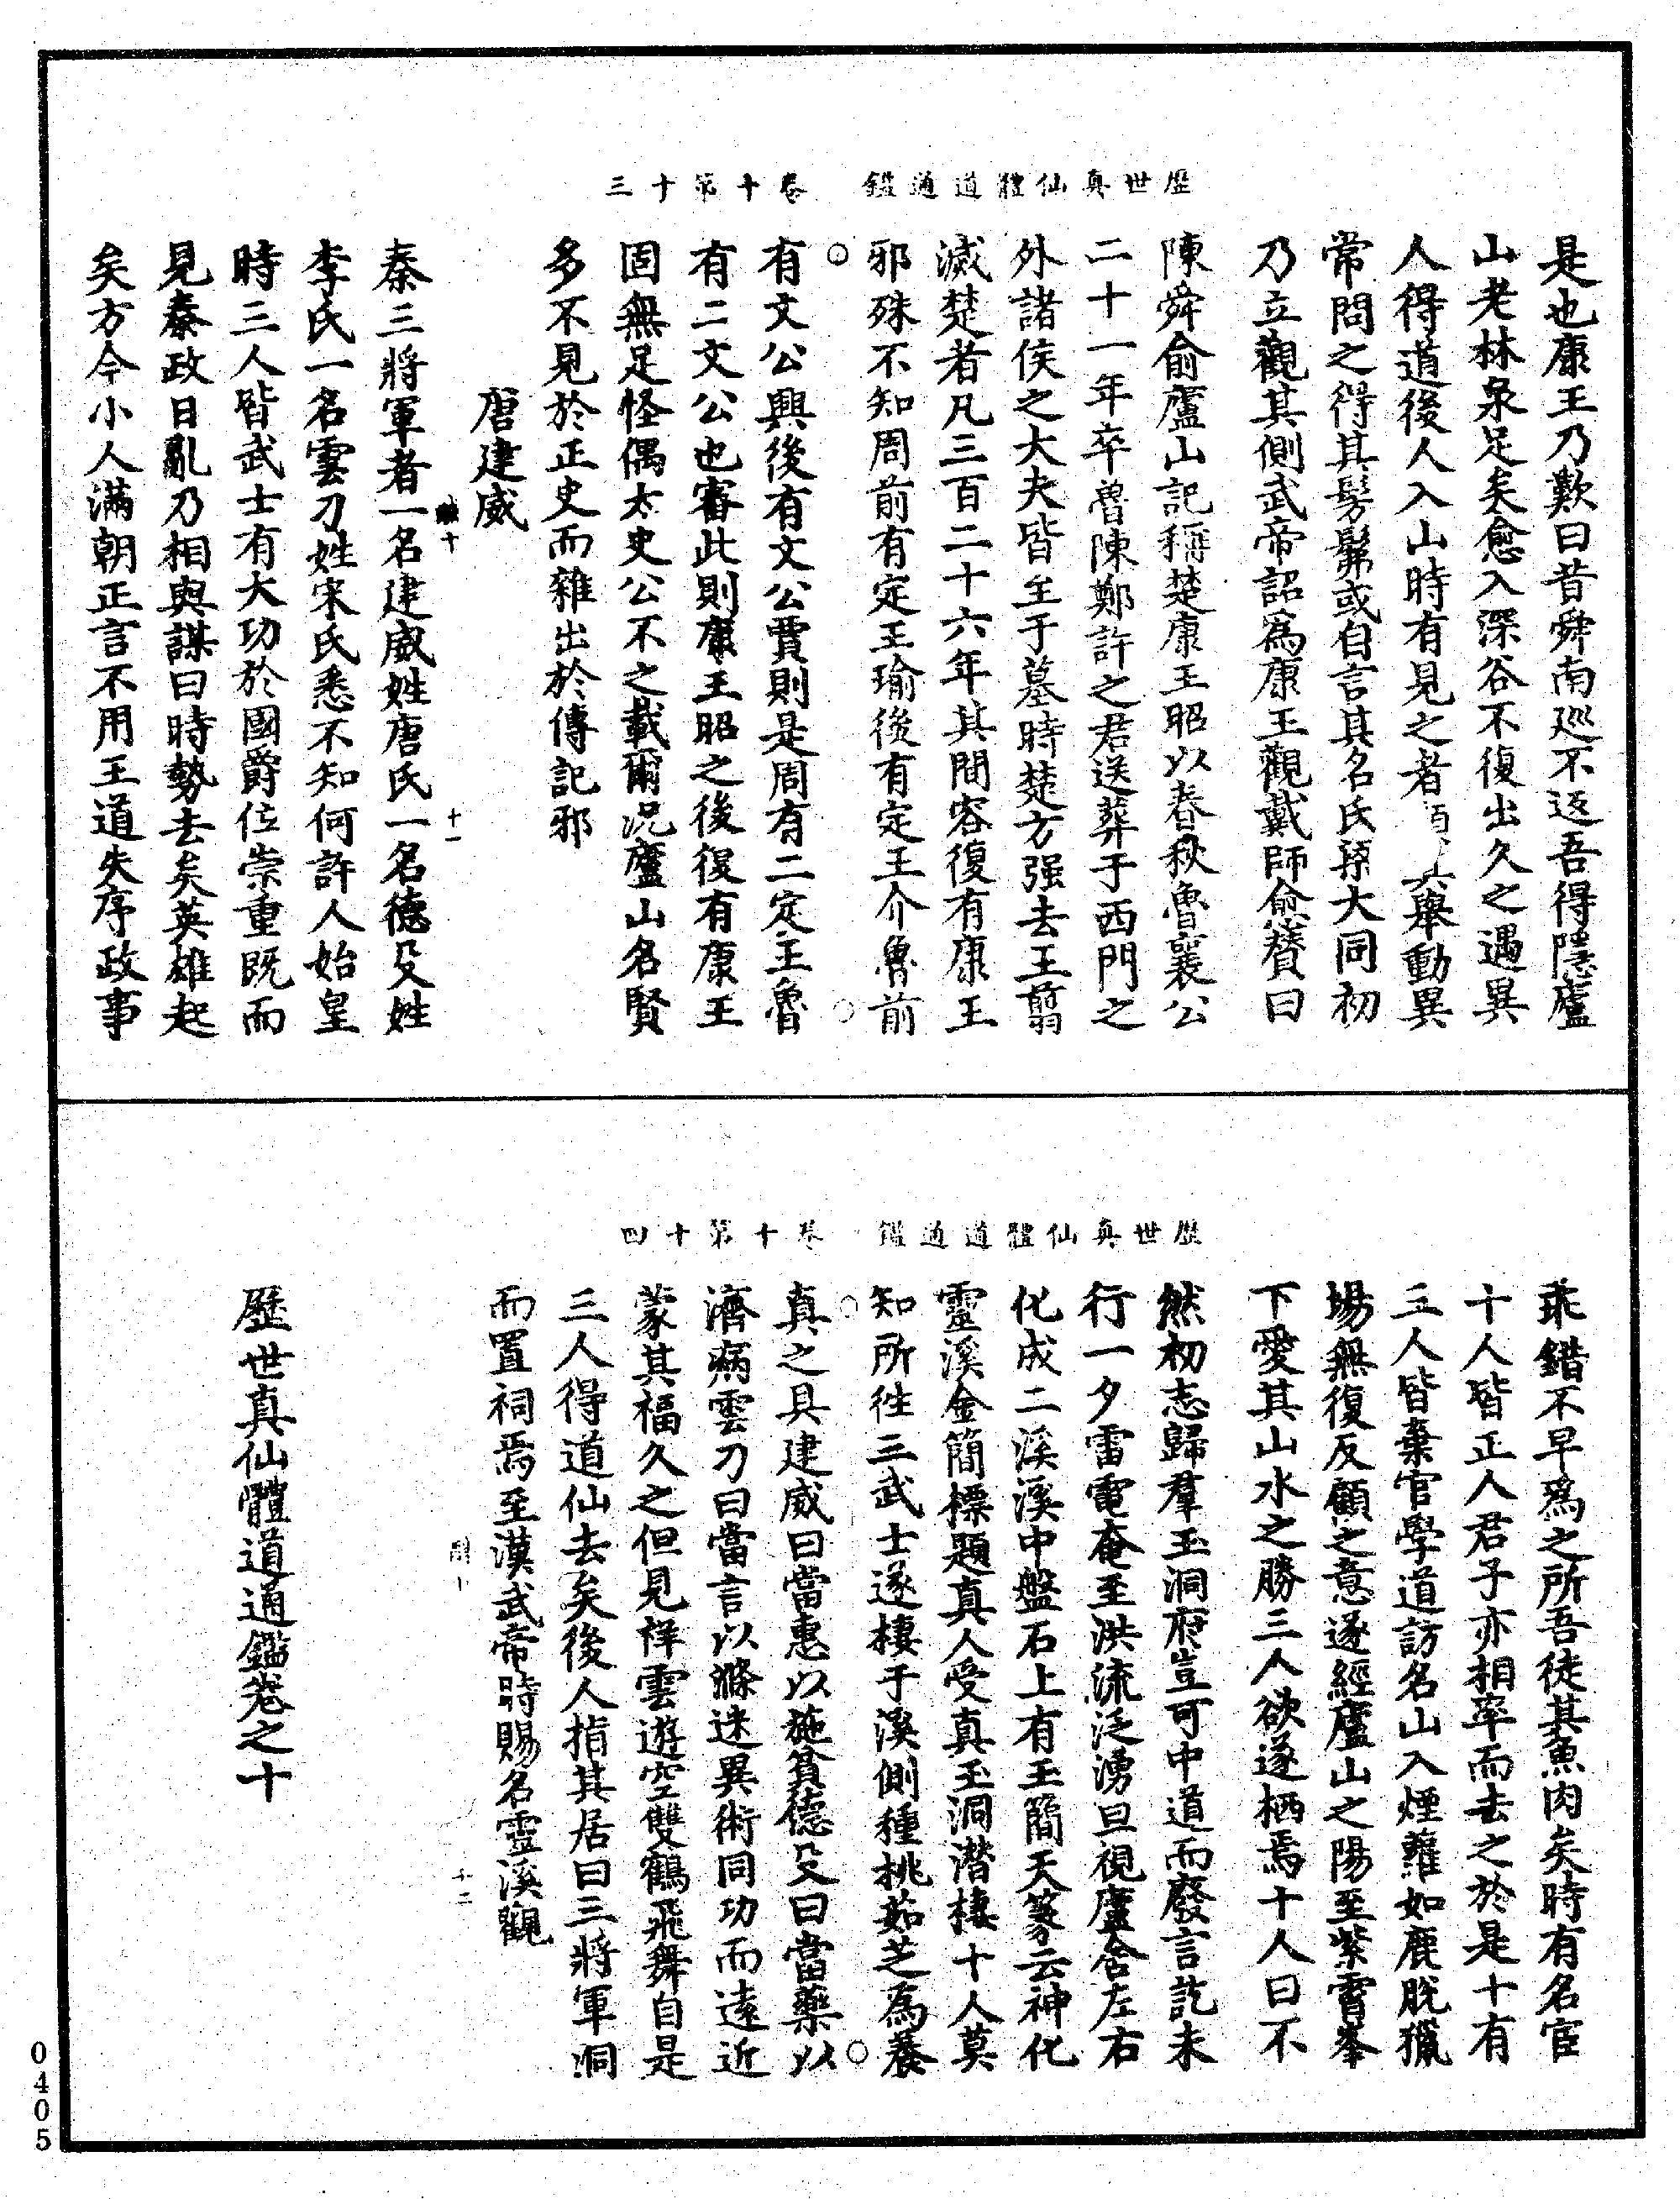 歷世真仙體道通鑑　卷十第十三
是也康王乃歎曰昔舜南巡不返吾得隱廬
山老林泉足矣愈入深谷不復出久之遇異
人得道後人入山時有見之者舉動異
常問之得其髣髴或自言其名氏藥大同初
乃立觀其側武帝詔為康王觀戴師愈贊曰
陳舜俞廬山記稱楚康王昭以春秋魯襄公
二十一年卒曾陳鄭許之君送葬于西門之
外諸侯之大夫皆至于墓時楚方强去王翦
滅楚者凡三百二十六年其間容復有康王
邪殊不知周前有定王瑜後有定王介魯前
有文公興後有文公賈則是周有二定王魯
有二文公也審此則康王昭之後復有康王
固無足怪偶太史公不之載爾況廬山名賢
多不見於正史而雜出於傳記邪
唐建威
秦三將軍者一名建威姓唐氏一名德殳姓
李氏一名雲刀姓宋氏悉不知何許人始皇
時三人皆武士有大功於國爵位崇重既而
見秦政日亂乃相與謀曰時勢去矣英雄起
矣方今小人滿朝正言不用王道失序政事
十一
歷世真仙體道通鑑　卷十第十四
乖錯不早為之所吾徒其魚肉矣時有名宦
十人皆正人君子亦相率而去之於是十有
三人皆棄官學道訪名山入煙蘿如鹿脫獵
場無復反顧之意遂經廬山之陽至紫霄峯
下愛其山水之勝三人欲遂栖焉十人曰不
然初志歸羣玉洞府豈可中道而廢言訖未
行一夕雷電奄至洪流泛湧旦視廬舍左右
化成二溪溪中盤石上有玉簡天篆云神化
靈溪金簡標題真人受真玉洞潛棲十人莫
知所往三武士遂棲于溪側種桃茹芝為養
真之具建威曰當惠以施貧德殳曰當藥以
濟病雲刀曰當言以滌迷異術同功而遠近
蒙其福久之但見祥雲遊空雙鶴飛舞自是
三人得道仙去矣後人指其居曰三將軍洞
而置祠焉至漢武帝時賜名靈溪觀
十二
歷世真仙體道通鑑卷之十
0405